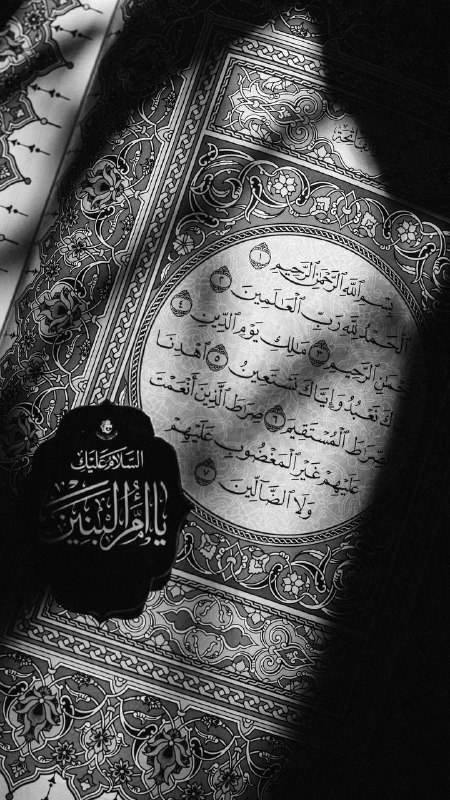 الفاتحة
بِسْمِ ٱللَّهِ ٱلرَّحْمَٰنِ ٱلرَّحِيمِ ١
ٱلْحَمْدُ لِلَّهِ رَبِّ ٱلْعَٰلَمِينَ ٢
حْمَٰنِ ٱلرَّحِيمِ ٣ مَٰلِكِ يَوْمِ ٱلدِّينِ ٤
كَ نَعْبُدُ وَإِيَّاكَ نَسْتَعِينُ ٥ ٱهْدِنَا
صِّرَٰطَ ٱلْمُسْتَقِيمَ ٦ صِرَٰطَ ٱلَّذِينَ أَنْعَمْتَ
عَلَيْهِمْ غَيْرِ ٱلْمَغْضُوبِ عَلَيْهِمْ
وَلَا ٱلضَّآلِّينَ ٧
السَّلَامُ عَلَيْكِ
يَا أُمَّ الْبَنِينَ